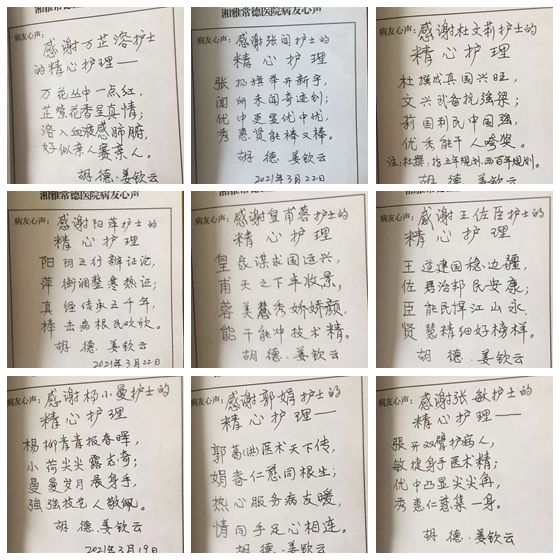 湘雅常德医院病友心声
病友心声:
感谢万芷溶护士
的精心护理——
万花丛中一点红,
芷萦花香呈真情;
溶入血液感肺腑,
好似亲人赛亲人。
胡德.姜钦云
湘雅常德医院病友心声
病友心声:
感谢张闻护士的
精心护理
张扬旗帜开新宇,
闻所未闻奇迹创;
优中更显优中优,
秀慧贤能棒又棒。
胡德.姜钦云
2021年3月22日
病友心声:
感谢杜文莉护士的
精心护理
杜撰成真国兴旺,
文兴武备抗强梁;
莉国利民中国强,
优秀能干人夸奖。
注:杜撰,指五年规划、两百年规划。
胡德.姜钦云
湘雅常德医院病友心声
病友心声:
感谢阳萍护士的
精心护理
阳阴五行辨证论,
萍衡调整寒热证;
真经传承五千年,
棒去病根民欢欣。
胡德.姜钦云
2021年3月22日
病友心声:
感谢皇甫蓉护士的
精心护理
皇成谋求国运兴,
甫天之下丰收景,
蓉美慧秀娇娇颜,
能干能冲技术精。
胡德.姜钦云
病友心声:
感谢王佐臣护士的
精心护理
王道建国稳边疆,
佐君治邦民安康;
臣能民悍江山永,
贤慧精细好榜样。
胡德.姜钦云
病友心声:
感谢杨小曼护士的
精心护理
杨柳青青报春晖,
小荷尖尖露志奇;
曼曼岁月展身手,
强强技艺人敬佩。
胡德.姜钦云
2021年3月19日
病友心声:
感谢郭娟护士的
精心护理——
郭葛(供)医术天下传,
娟春仁慈同根生;
热心服务病友暖,
情同手足心相连。
胡德.姜钦云
病友心声:
感谢张敏护士的
精心护理——
张开双臂护病人,
敏捷身手医术精;
优中凸显尖尖角,
秀惠仁慈集一身。
胡德.姜钦云